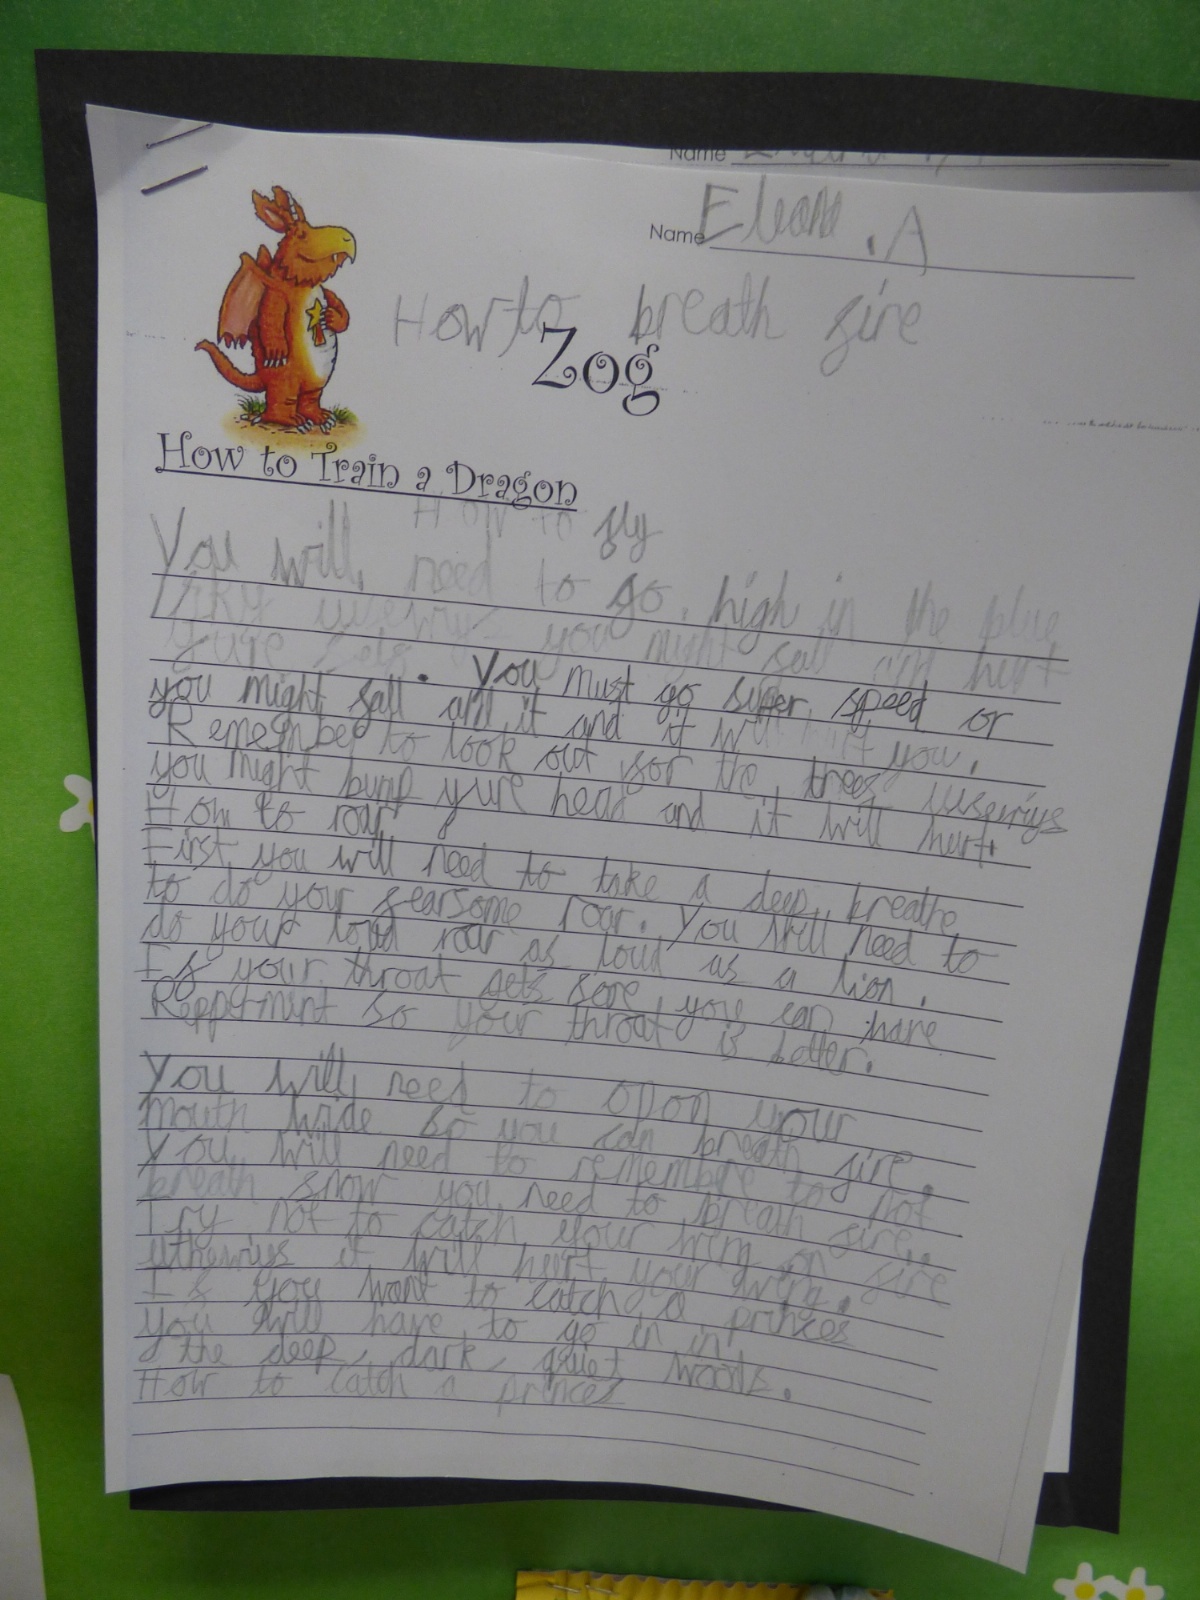 Name
Name Eleana . A
How to breath fire
Zog
How to Train a Dragon
How to fly
You will need to go high in the blue
sky you might fall and hurt
. You must go super speed or
you might fall and it and it will hurt you.
Remember to look out for the trees
you might bump yure head and it will hurt.
How to roar
First you will need to take a deep breathe
to do your fearsome roar. You will need to
do your loud roar as loud as a lion.
If your throat gets sore you can have
Peppermint so your throat is better.
You will need to open your
mouth wide so you can breath fire.
You will need to remembre to not
breath snow you need to breath fire.
Try not to catch your wing on fire
it will hurt your wing.
If you want to catch a princes
you will have to go in in
the deep, dark, quiet woods.
How to catch a princes